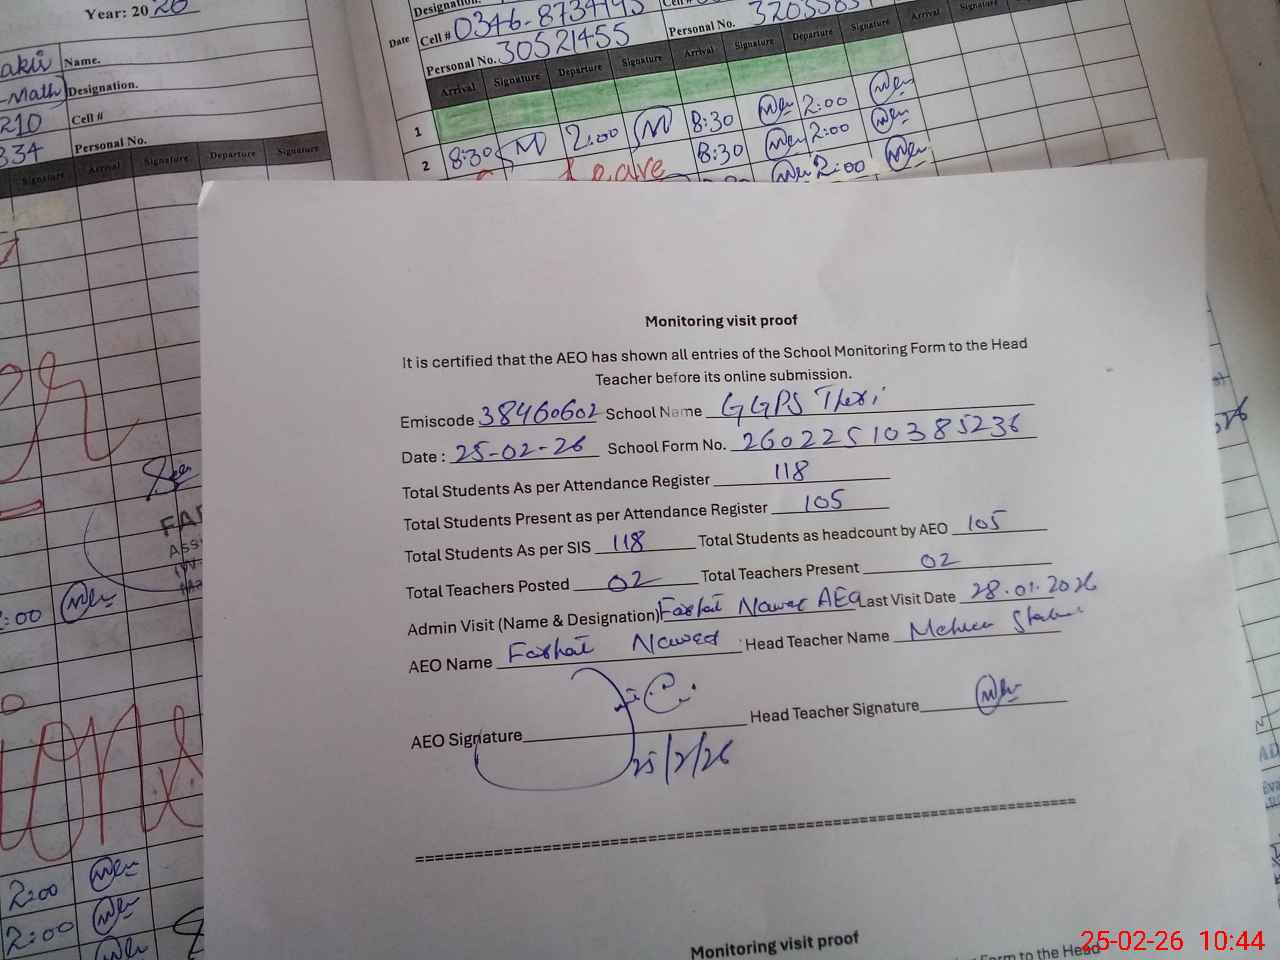 Year: 2026
Name.
Designation.
Cell #
Personal No.
Signature Arrival Signature Departure Signature
-Math
210
334
Designation.
Date Cell # 0346-8734445
Personal No. 30521455 Personal No.
Arrival Signature Departure Signature Arrival Signature Departure Signature Arrival Signature
1
2 8:30 2:00 8:30 2:00
Leave 8:30 2:00
2:00
Monitoring visit proof
It is certified that the AEO has shown all entries of the School Monitoring Form to the Head
Teacher before its online submission.
Emiscode 38460602 School Name GGPS Theri
Date : 25-02-26 School Form No. 26022510385236
Total Students As per Attendance Register 118
Total Students Present as per Attendance Register 105
Total Students As per SIS 118 Total Students as headcount by AEO 105
Total Teachers Posted 02 Total Teachers Present 02
Admin Visit (Name & Designation) Farhat Naweed AEO Last Visit Date 28.01.2026
AEO Name Farhat Naweed Head Teacher Name
AEO Signature Head Teacher Signature
25/2/26
================================================
Monitoring visit proof
Form to the Head
2:00
2:00
:00
25-02-26 10:44